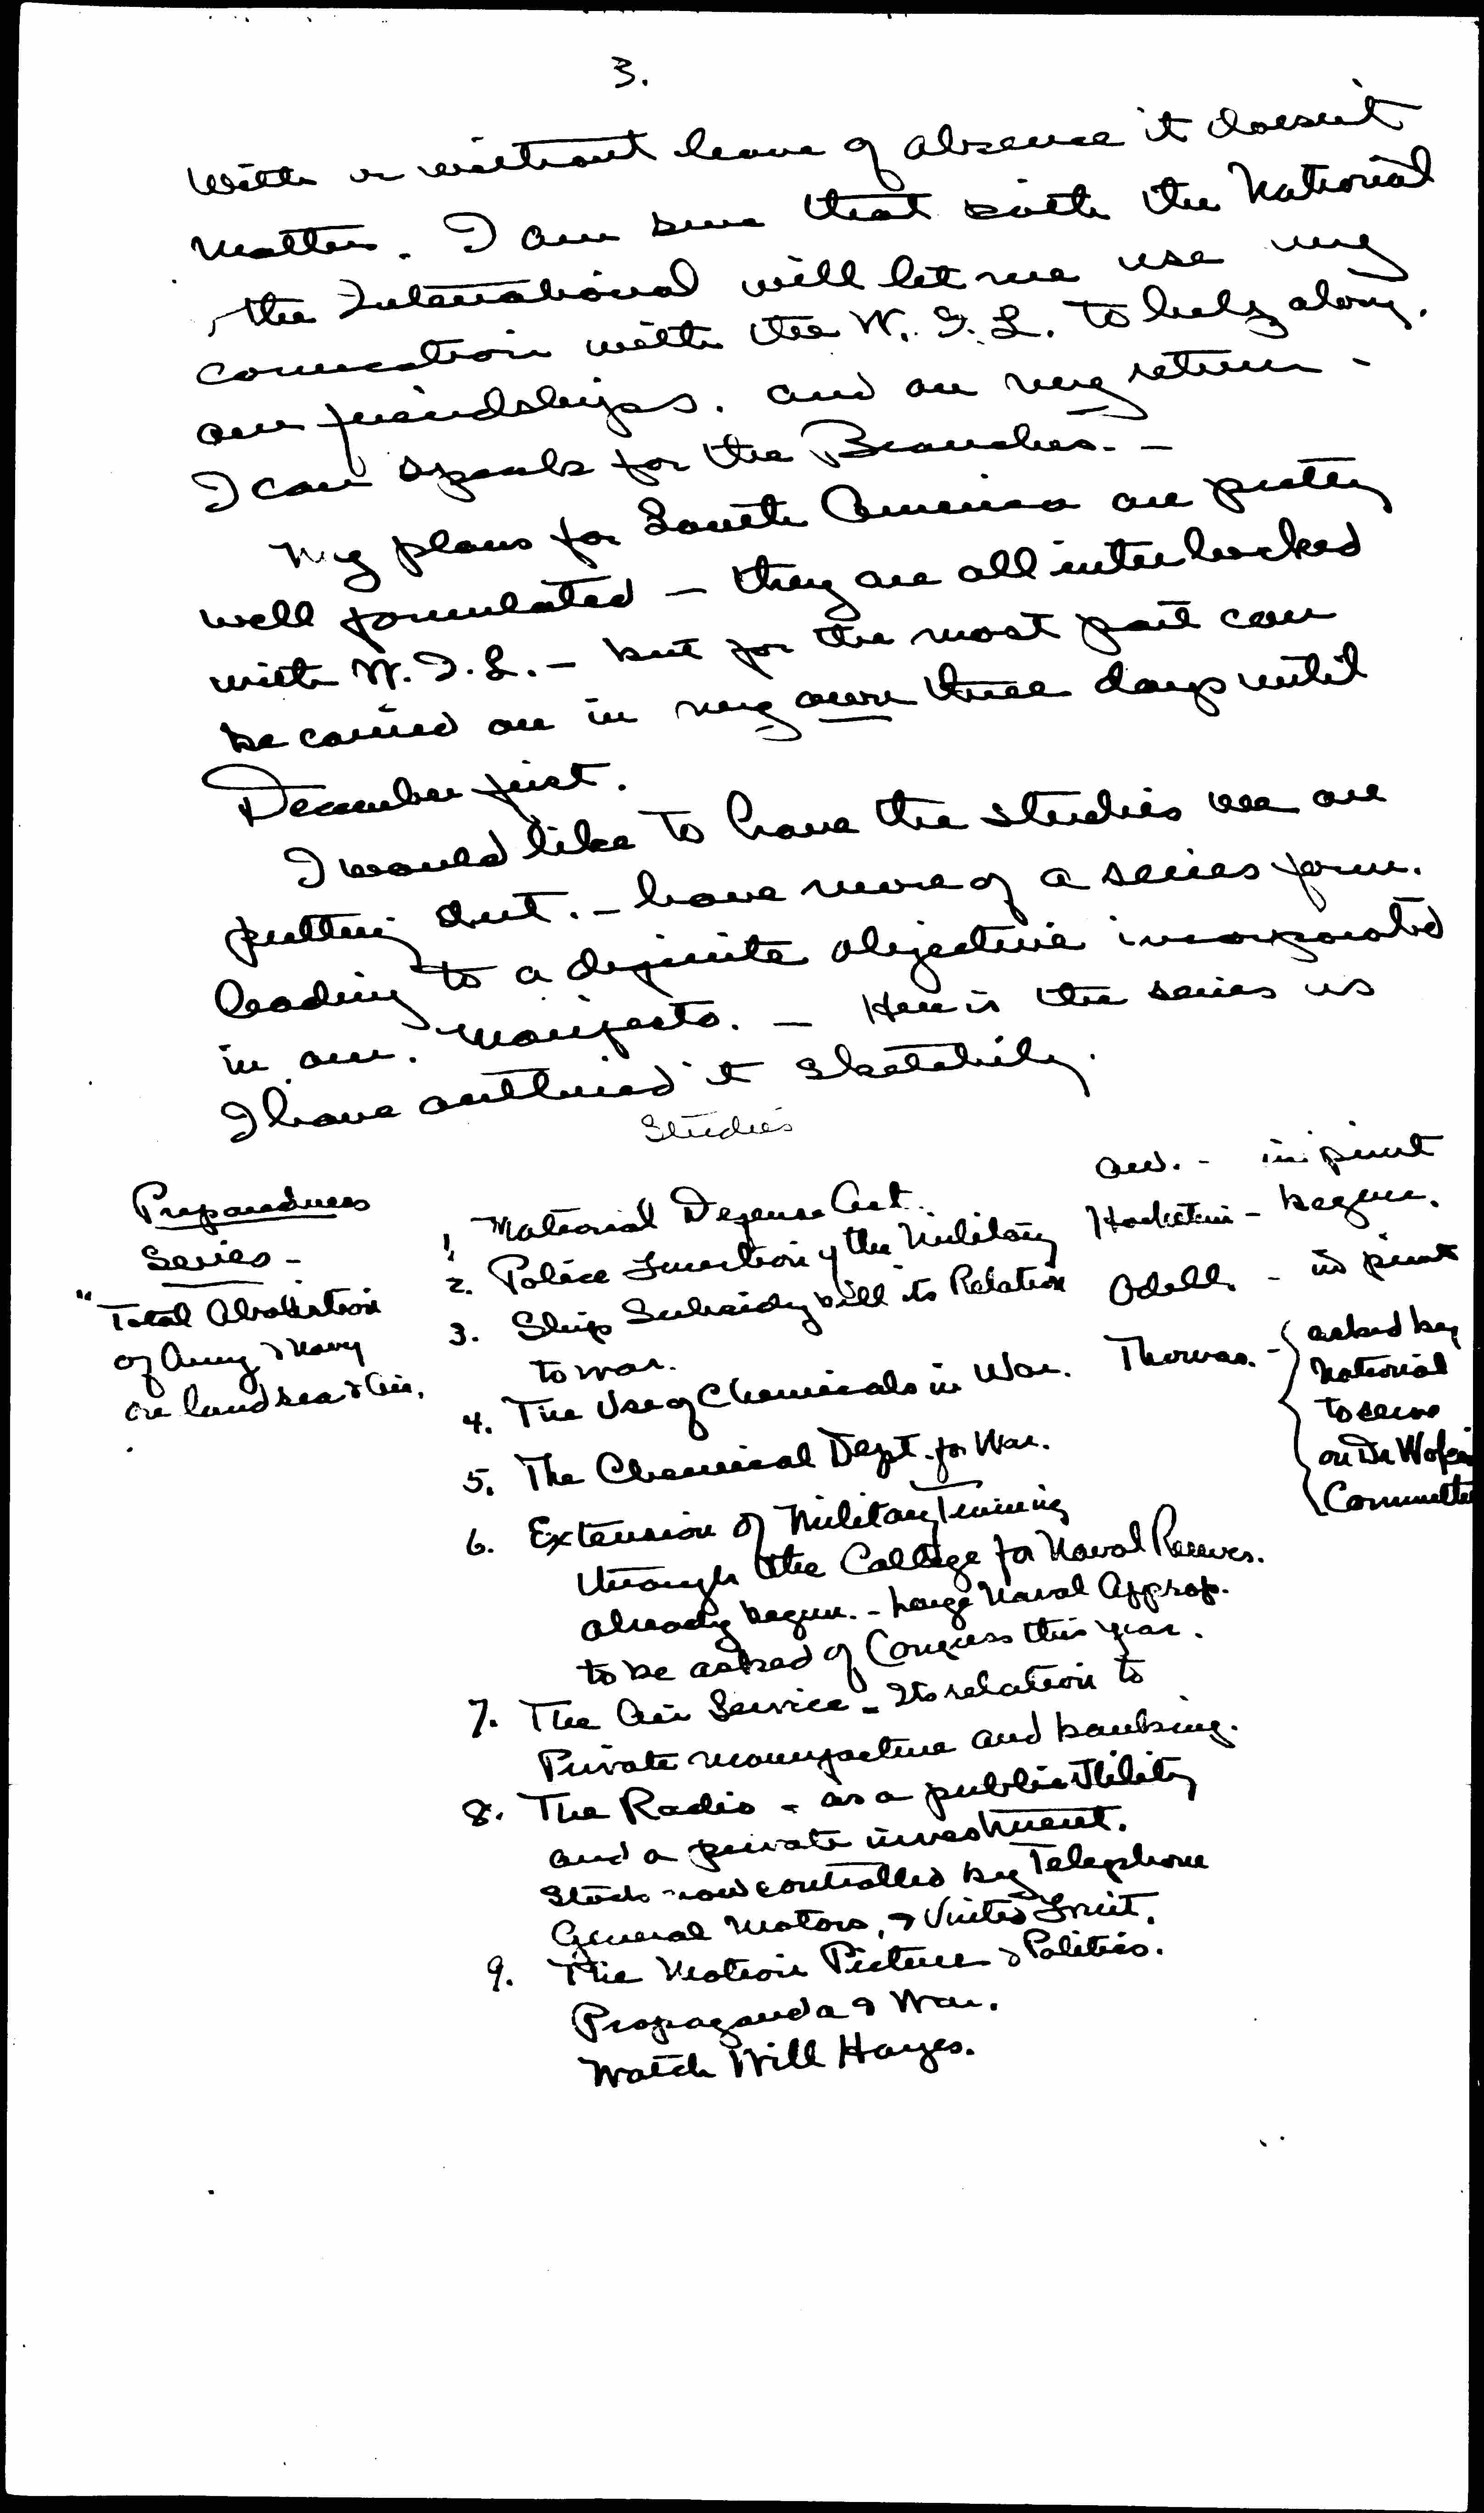 3.
With or without leave of absence it doesn't
matter. I am sure that both the National
, the International will let me use my
connection with the W. I. L. to help along.
our friendships. and on my return -
I can speak for the Branches. -
My plans for South America are pretty
well formulated - they are all interlocked
with W. I. L. - but for the most part can
be carried on in my own three days until
December first.
I would like to have the studies we are
putting out. - have more of a series form.
leading to a definite objective incorporated
in our manifesto. - Here is the series as
I have outlined it sketchily.
Studies
Preparedness
Series -
"Total Abolition
of Army & Navy
on land sea & air.
1. National Defense Act. - in print
2. Police Function of the Military - begun.
3. Ship Subsidy bill its Relation Odell. - in print
to war.
4. The Use of Chemicals in War. Thomas. -
asked by
National
to serve
on Dr
Committee
5. The Chemical Dept. for War.
6. Extension of Military Training
through the College for Naval Reserves.
already begun. - Large Naval Approp.
to be asked of Congress this year.
7. The Air Service - Its relation to
Private manufacture and banking.
8. The Radio - as a public Utility
and a private investment.
Stock now controlled by Telephone
General Motors, & United Fruit.
9. The Motion Picture & Politics.
Propaganda & War.
Watch Will Hayes.